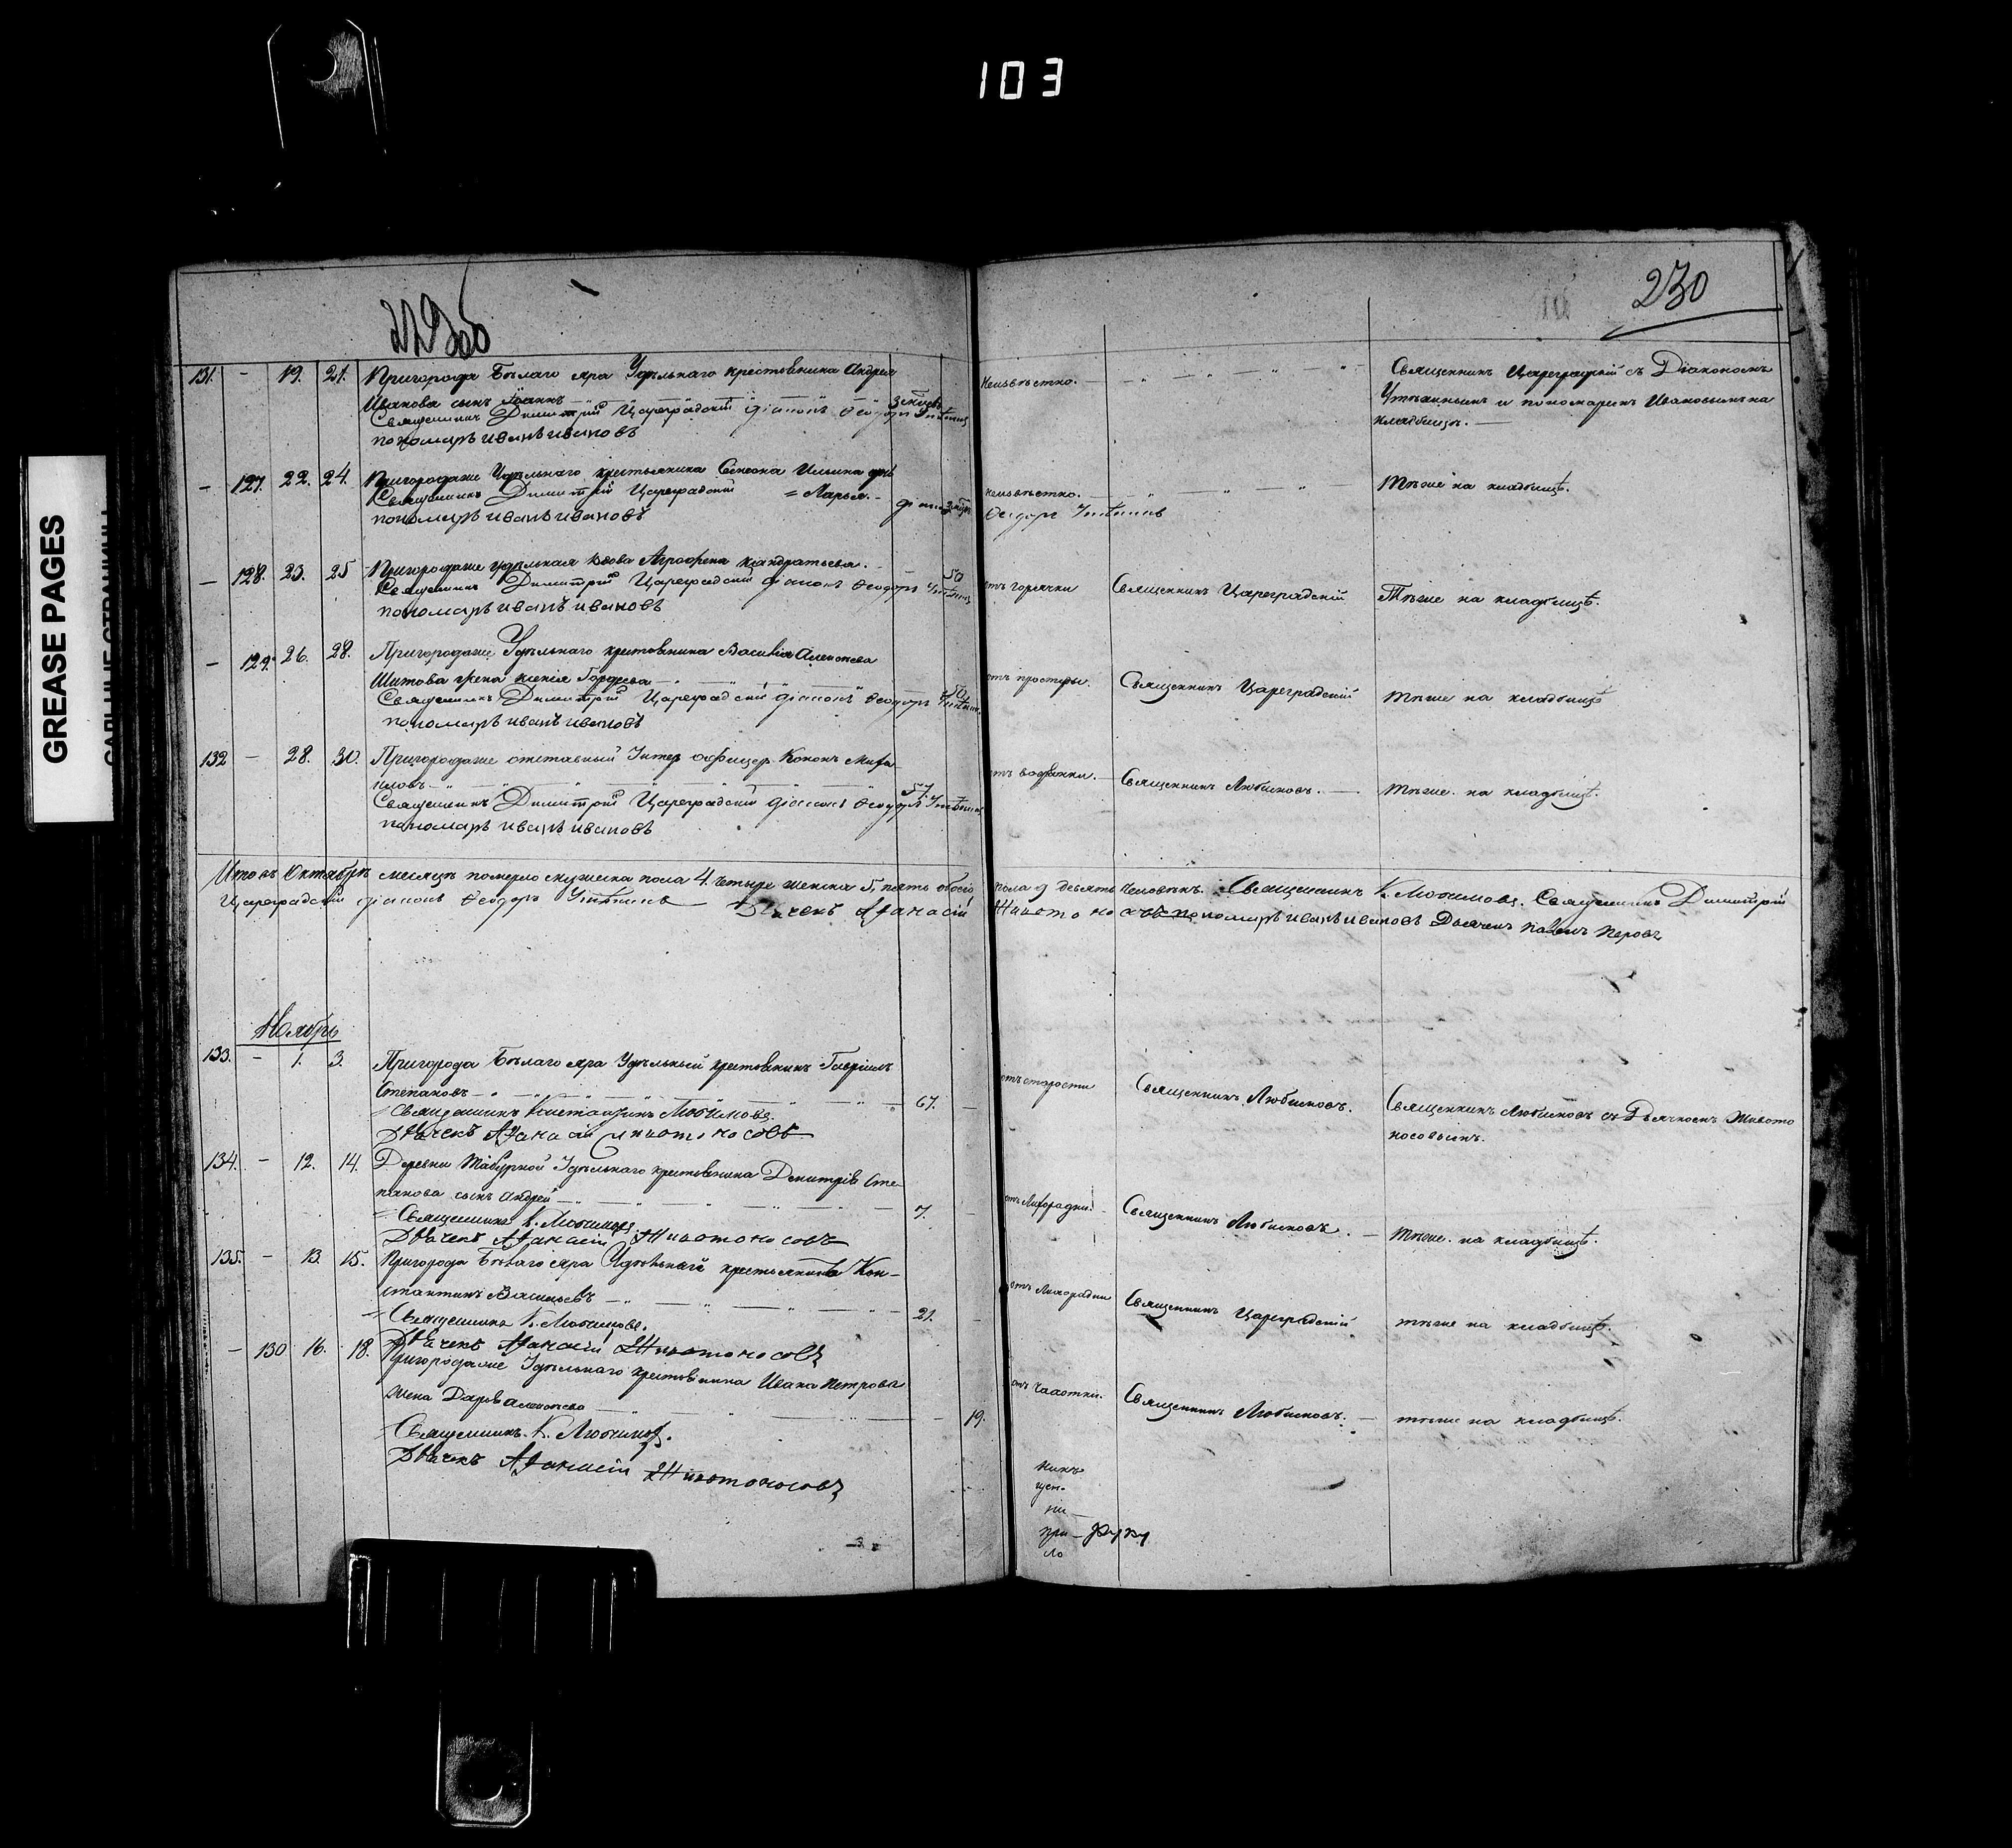 103
GREASE PAGES
САЛЬНЫЕ СТРАНИЦЫ
229об
230
131. — 19. 21. Пригорода Бѣлаго яра Удѣльнаго крестьянина Андрея
Иванова сынъ Іоаннъ — 3 мѣсяц
Священникъ Димитрій Цареградскій діаконъ Ѳеодоръ
пономарь иванъ ивановъ
неизвѣстно.
Священникъ Цареградскій съ Діакономъ
и пономаремъ Ивановымъ на
кладбищѣ.
— 127. 22. 24. Пригородаже Удѣльнаго крестьянина Симеона Ильина дочь
Священникъ Димитрій Цареградскій = Марья. —
пономарь иванъ ивановъ
неизвѣстно.
Ѳеодоръ
тѣже на кладбищѣ.
— 128. 23. 25 Пригородаже удѣльная вдова Агрофена Кандратьева. — 50
Священникъ Димитрій Цареградскій діаконъ Ѳеодоръ
пономарь иванъ ивановъ
отъ горячки Священникъ Цареградскій Тѣже на кладбищѣ.
— 129. 26. 28. Пригородаже Удѣльнаго крестьянина Василія Алексѣева
Шитова жена Ксенія Гордѣева — 50
Священникъ Димитрій Цареградскій діаконъ Ѳеодоръ
пономарь иванъ ивановъ
отъ простуды. Священникъ Цареградскій тѣже на кладбищѣ
132 — 28. 30. Пригородаже отставный Унтер офицер Кононъ Миха
иловъ — 57.
Священникъ Димитрій Цареградскій діаконъ Ѳеодоръ
пономарь иванъ ивановъ
отъ водянки. — Священникъ Любимовъ. — тѣже. на кладбищѣ.
Итовъ Октябрѣ месяцѣ померло мужеска пола 4. четыре женска 5. пять обоего пола 9 девять человѣкъ. Священникъ К. Любимовъ. Священникъ Димитрій
Цареградскій діаконъ Ѳеодоръ Дьячекъ Афанасій Животоносовъ пономарь иванъ ивановъ Дьячекъ павелъ
Ноябрь
133. — 1. 3. Пригорода Бѣлаго яра Удѣльный крестьянинъ Гавріилъ
Степановъ — 67. —
Священникъ Константинъ Любимовъ.
Дьячекъ Афанасій Животоносовъ
отъ старости Священникъ Любимовъ. Священникъ Любимовъ съ Дьячкомъ Живото
носовымъ.
134. — 12. 14. Деревни Удѣльнаго крестьянина Димитрія Сте
панова сынъ Андрей — 7. —
Священникъ К. Любимовъ
Дьячекъ Афанасій Животоносовъ
отъ Лихорадки. Священникъ Любимовъ. — тѣже. на кладбищѣ.
135. — 13. 15. Пригорода Бѣлаго яра Удѣльный крестьянинъ Кон—
стантинъ Васильевъ — 21. —
Священникъ К. Любимовъ.
Дьячекъ Афанасій Животоносовъ
отъ Лихорадки Священникъ Цареградскій тѣже на кладбищѣ.
— 130 16. 18. Пригородаже Удѣльнаго крестьянина Ивана Петрова
жена Дарья Алексѣева — 19.
Священникъ К. Любимовъ.
Дьячекъ Афанасій Животоносовъ
отъ Чахотки. Священникъ Любимовъ. — тѣже на кладбищѣ.
никъ
щен.
ни
при — руку
ло